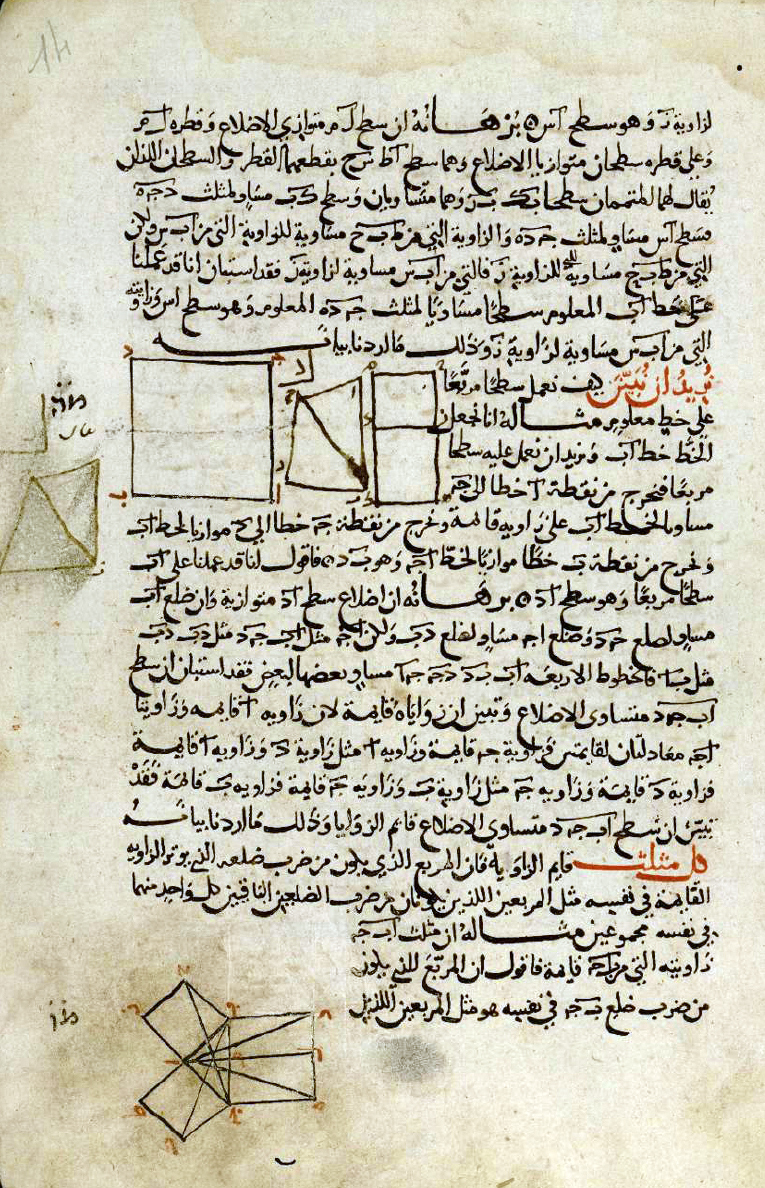 لزاوية ز وهو سطح اس برهانه ان سطح ل م متوازي الاضلاع وقطره ل م
وعلى قطره سطحان متوازيا الاضلاع وهما سطح اط س ح يقطعهما القطر والسطحان اللذان
يقال لهما المتممان سطحا ب ك ب ن وهما متساويان وسطح ك ب مساو لمثلث د ج ه
فسطح اس مساو لمثلث ج د ه والزاوية التي من ط ب ح مساوية للزاوية التي من اب س ولكن
التي من ط ب ح مساوية للزاوية ز فالتي من اب س مساوية لزاوية ز فقد استبان انا قد عملنا
على خط اب المعلوم سطحا مساويا لمثلث ج د ه المعلوم وهو سطح اس وزاويته
التي من اب س مساوية لزاوية ز وذلك ما اردنا بيانه
نريد ان نبين كيف نعمل سطحا مربعا
على خط معلوم مثاله انا نجعل
الخط خط اب ونريد ان نعمل عليه سطحا
مربعا فنخرج من نقطة ا خطا الى ج
مساويا لخط اب على زاوية قائمة ونخرج من نقطة ج خطا الى د موازيا لخط اب
ونخرج من نقطة ب خطا موازيا لخط اج وهو ب د فاقول انا قد عملنا على اب
سطحا مربعا وهو سطح اد برهانه ان اضلاع سطح اد متوازية وان ضلع اب
مساو لضلع ج د وضلع اج مساو لضلع د ب ولكن اج مثل اب ج د مثل د ب د ب
مثل ب ا فالخطوط الاربعة اب ب د د ج ج ا مساو بعضها لبعض فقد استبان ان سطح
اب ج د متساوي الاضلاع وتبين ان زواياه قائمة لان زاوية ا قائمة وزاويتا
اج معادلتان لقائمتين فزاوية ج قائمة وزاوية ا مثل زاوية د وزاوية ا قائمة
فزاوية د قائمة وزاوية ج مثل زاوية ب وزاوية ج قائمة فزاوية ب قائمة فقد
تبين ان سطح اب ج د متساوي الاضلاع قائم الزوايا وذلك ما اردنا بيانه
كل مثلث قايم الزاوية فان المربع الذي يكون من ضرب ضلعه الذي يوتر الزاوية
القائمة في نفسه مثل المربعين اللذين يكونان من ضرب الضلعين الباقيين كل واحد منهما
في نفسه مجموعين مثاله ان مثلث اب ج
زاويته التي من ب ا ج قائمة فاقول ان المربع الذي يكون
من ضرب ضلع ب ج في نفسه هو مثل المربعين اللذين